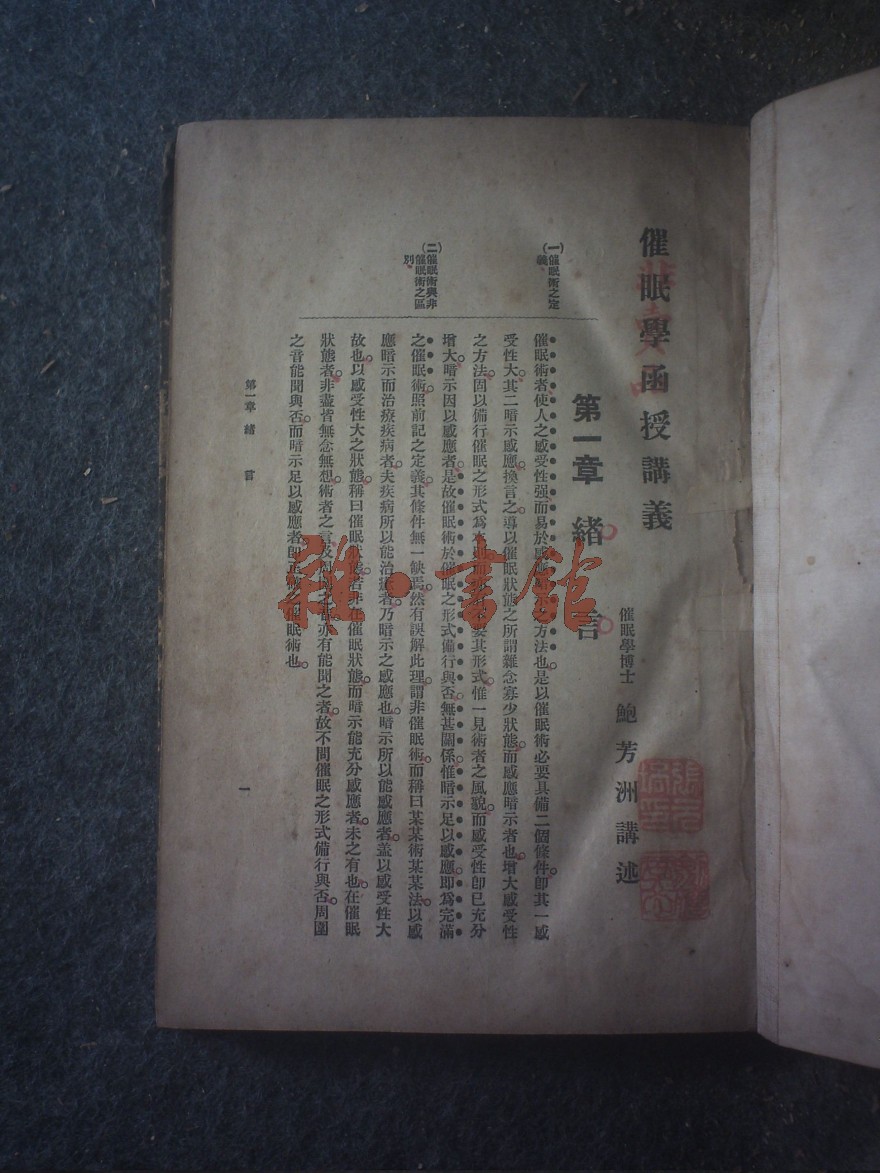 催眠學函授講義
催眠學博士 鮑芳洲講述
第一章 緒言
(一)催眠術之定義
催眠術者使人之感受性强而易於感應暗示之方法也是以催眠術必要具備二個條件卽其一感
受性大其二暗示感應換言之導以催眠狀態之所謂雜念寡少狀態而感應暗示者也增大感受性
之方法固以備行催眠之形式爲本則而要其形式惟一見術者之風貌而感受性卽已充分
增大暗示因以感應者是故催眠術於催眠之形式備行與否無甚關係惟暗示足以感應卽爲完滿
(二)催眠術與非催眠術之區別
之催眠術照前記之定義其條件無一缺焉然有誤解此理謂非催眠術而稱曰某某術某某法以感
應暗示而治療疾病者夫疾病所以能治療者乃暗示之感應也暗示所以能感應者蓋以感受性大
故也以感受性大之狀態稱曰催眠狀態若非在催眠狀態而暗示能充分感應者未之有也在催眠
狀態者非盡皆無念無想術者之言及亦有能聞之者故不問催眠之形式備行與否周圍
之音能聞與否而暗示足以感應者卽催眠術也
第一章 緒言
一
雜·書館